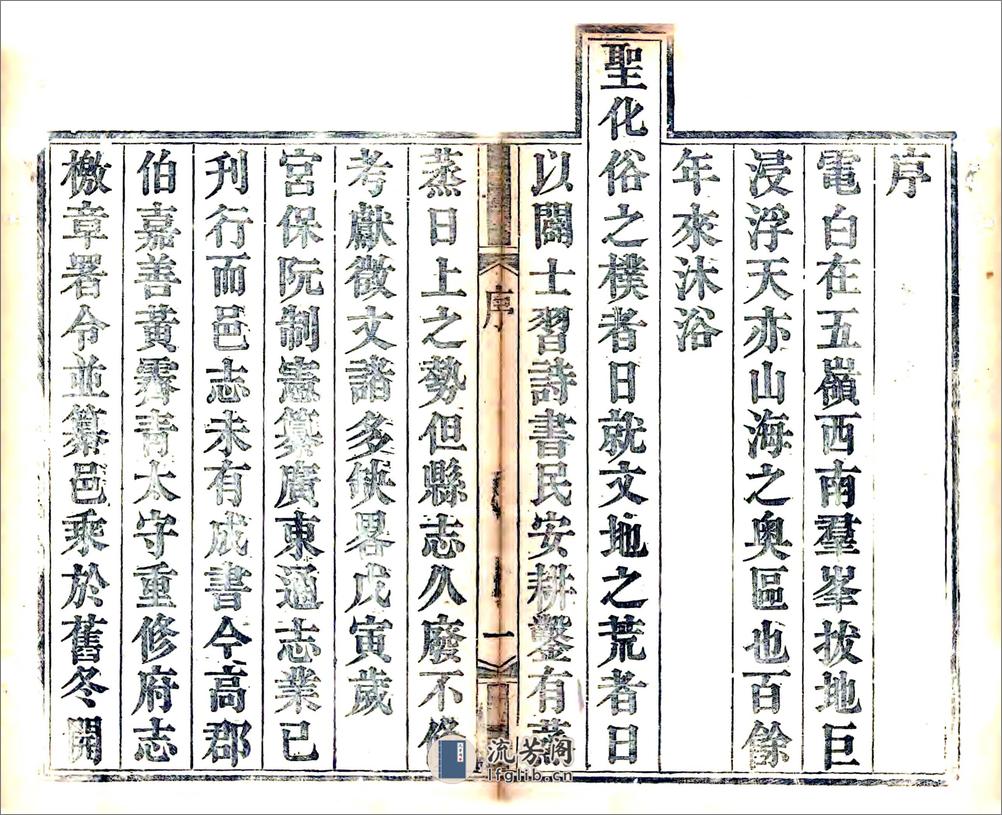 序
電白在五嶺西南羣峯拔地巨
浸浮天亦山海之奥區也百餘
年來沐浴
聖化俗之樸者日就文地之荒者日
以闢士習詩書民安耕鑿有蒸
序
一
蒸日上之勢但縣志久廢不修
考獻徵文諸多佚畧戊寅歲
宮保阮制憲纂廣東通志業已
刋行而邑志未有成書今高郡
伯嘉善黃霽青太守重修府志
檄章署令並纂邑乘於舊冬開
流芳阁
lfglib.cn